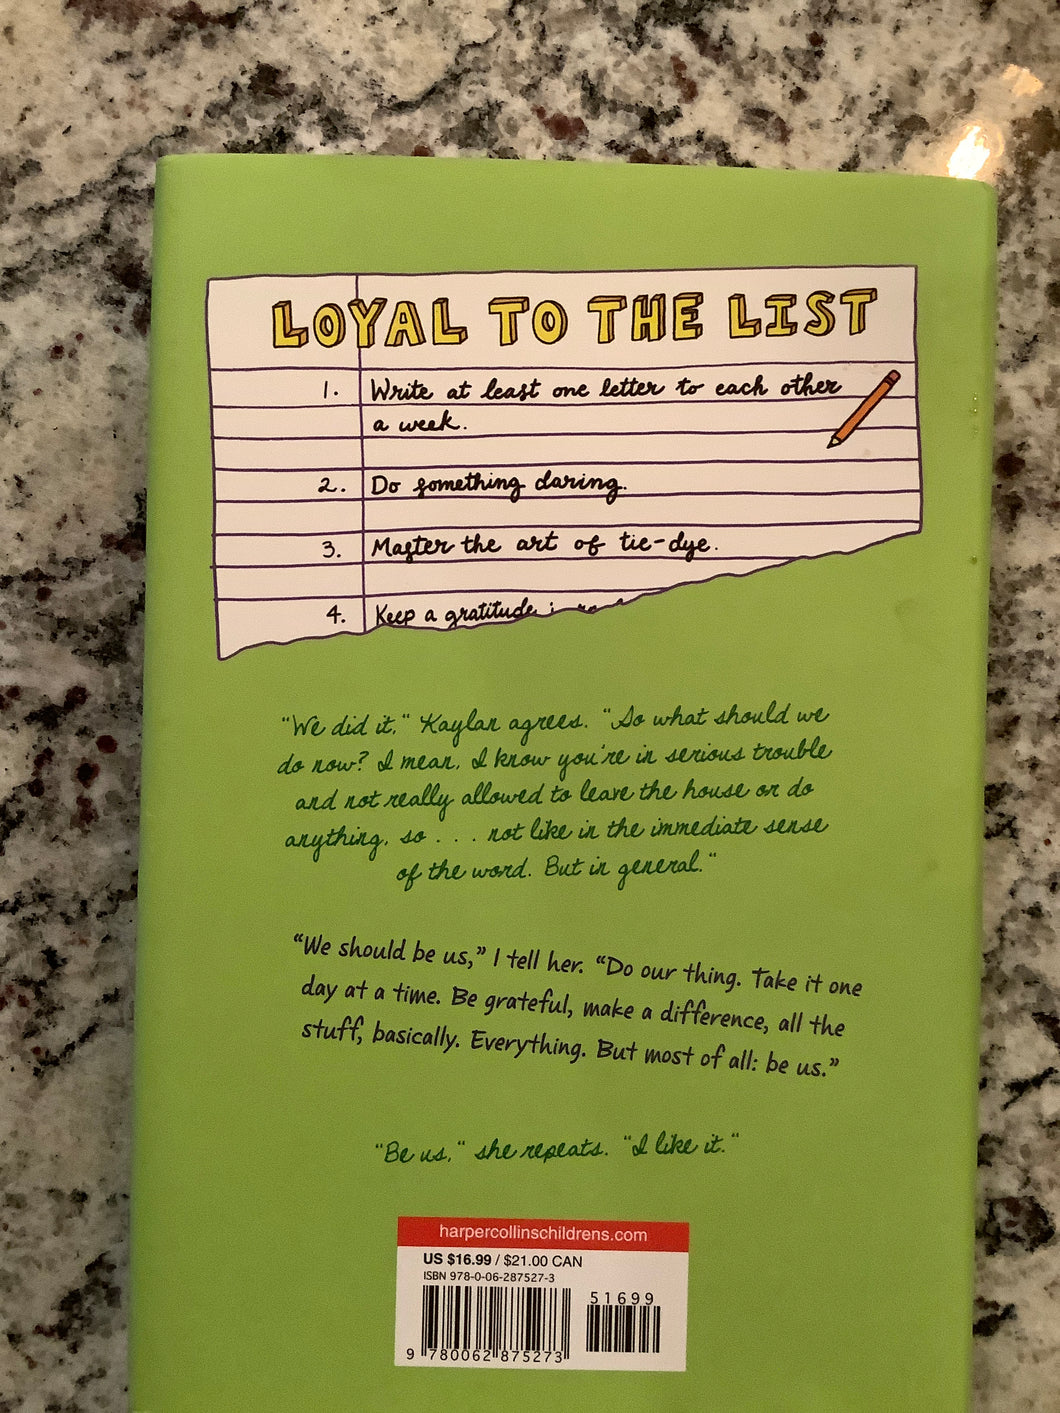 LOYAL TO THE LIST
1. Write at least one letter to each other
a week.
2. Do something daring.
3. Master the art of tie-dye.
4. Keep a gratitude
"We did it," Kaylan agrees. "So what should we
do now? I mean, I know you're in serious trouble
and not really allowed to leave the house or do
anything, so . . . not like in the immediate sense
of the word. But in general."
"We should be us," I tell her. "Do our thing. Take it one
day at a time. Be grateful, make a difference, all the
stuff, basically. Everything. But most of all: be us."
"Be us," she repeats. "I like it."
harpercollinschildrens.com
US $16.99 / $21.00 CAN
ISBN 978-0-06-287527-3
51699
9 780062 875273